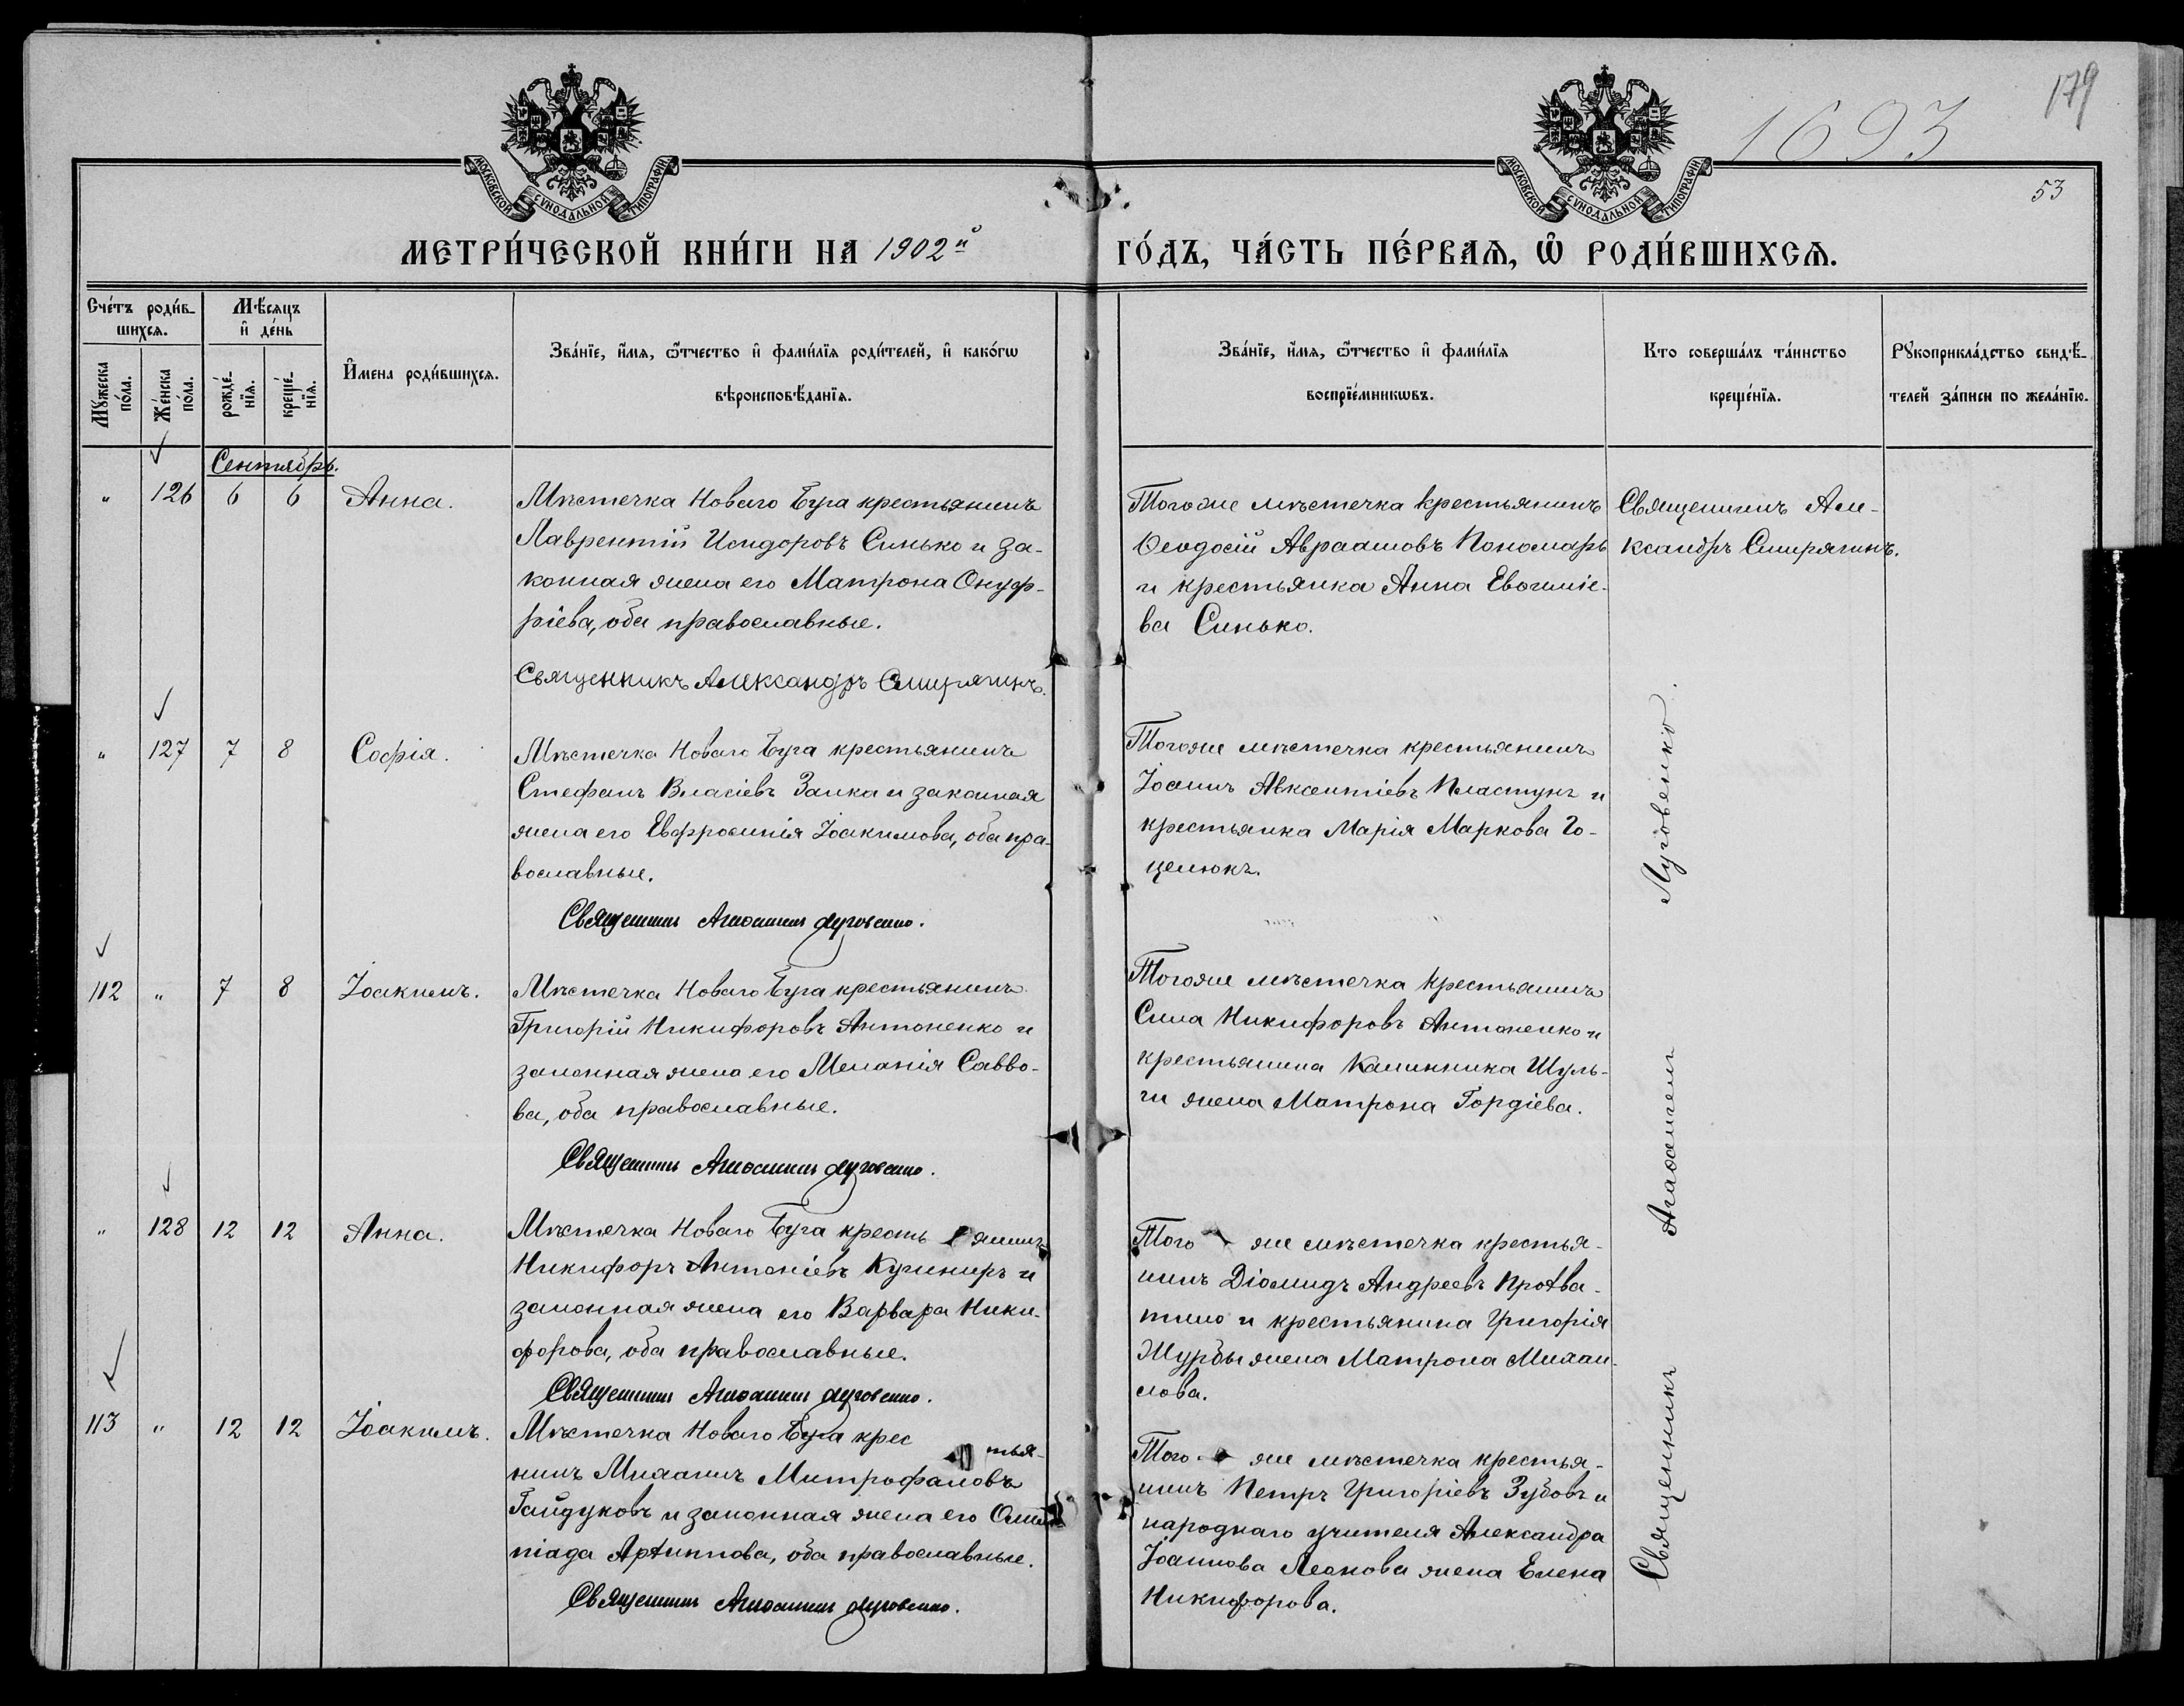 1693
179
53
МОСКОВСКОЙ СѴНОДАЛЬНОЙ ТИПОГРАФІИ
МОСКОВСКОЙ СѴНОДАЛЬНОЙ ТИПОГРАФІИ
МЕТРИ́ЧЕСКОЙ КНИ́ГИ НА 1902й ГО́ДЪ, ЧА́СТЬ ПЕ́РВАѦ, Ѡ҆ РОДИ́ВШИХСѦ.
Сче́тъ роди́в-
шихсѧ.
Мѣ́сѧцъ
и҆ де́нь
Мꙋжеска по́ла.
Же́нска по́ла.
рожде́-
нїѧ.
креще́-
нїѧ.
И҆мена роди́вшихсѧ.
Зва́нїе, и҆́мѧ, ѻ҆́тчество и҆ фами́лїѧ роди́телей, и҆ како́гѡ
вѣроисповѣ́данїѧ.
Зва́нїе, и҆́мѧ, ѻ҆́тчество и҆ фами́лїѧ
воспрїе́мникѡвъ.
Кто соверша́лъ та́инство
креще́нїѧ.
Рꙋкоприкла́дство свидѣ́-
телей за́писи по жела́нїю.
Сентябрь.
" 126 6 6 Анна.
Мѣстечка Новаго Буга крестьянинъ
Лаврентій Исидоровъ Синько и за-
конная жена его Матрона Онуф-
ріева, оба православные.
Священникъ Александръ Смирягинъ.
Того же мѣстечка крестьянинъ
Ѳеодосій Авраамовъ Пономарь
и крестьянка Анна Евѳиміе-
ва Синько.
Священникъ Але-
ксандръ Смирягинъ.
" 127 7 8 Софія.
Мѣстечка Новаго Буга крестьянинъ
Стефанъ Власіевъ Заика и законная
жена его Евфросинія Іоакимова, оба пра-
вославные.
Священникъ Агаѳангелъ Луговенко.
Тогоже мѣстечка крестьянинъ
Іоаннъ Авксентіевъ Пластунъ и
крестьянка Марія Маркова Го-
целюкъ.
112 " 7 8 Іоакимъ.
Мѣстечка Новаго Буга крестьянинъ
Григорій Никифоровъ Антоненко и
законная жена его Меланія Савво-
ва, оба православные.
Священникъ Агаѳангелъ Луговенко.
Тогоже мѣстечка крестьянинъ
Сила Никифоровъ Антоненко и
крестьянина Калинника Шуль-
ги жена Матрона Гордіева.
" 128 12 12 Анна.
Мѣстечка Новаго Буга кресть янинъ
Никифоръ Антоніевъ Кушниръ и
законная жена его Варвара Ники-
форова, оба православные.
Священникъ Агаѳангелъ Луговенко.
Того же мѣстечка крестья-
нинъ Діомидъ Андреевъ
и крестьянина Григорія
Журбы жена Матрона Михаи-
лова.
113 " 12 12 Іоакимъ.
Мѣстечка Новаго Буга крес тья-
нинъ Михаилъ Митрофановъ
Гайдуковъ и законная жена его Олим
піада, оба православные.
Священникъ Агаѳангелъ Луговенко.
Того же мѣстечка крестья-
нинъ Петръ Григоріевъ Зубовъ и
народнаго учителя Александра
Іоаннова Леонова жена Елена
Никифорова.
Священникъ Агаѳангелъ Луговенко.